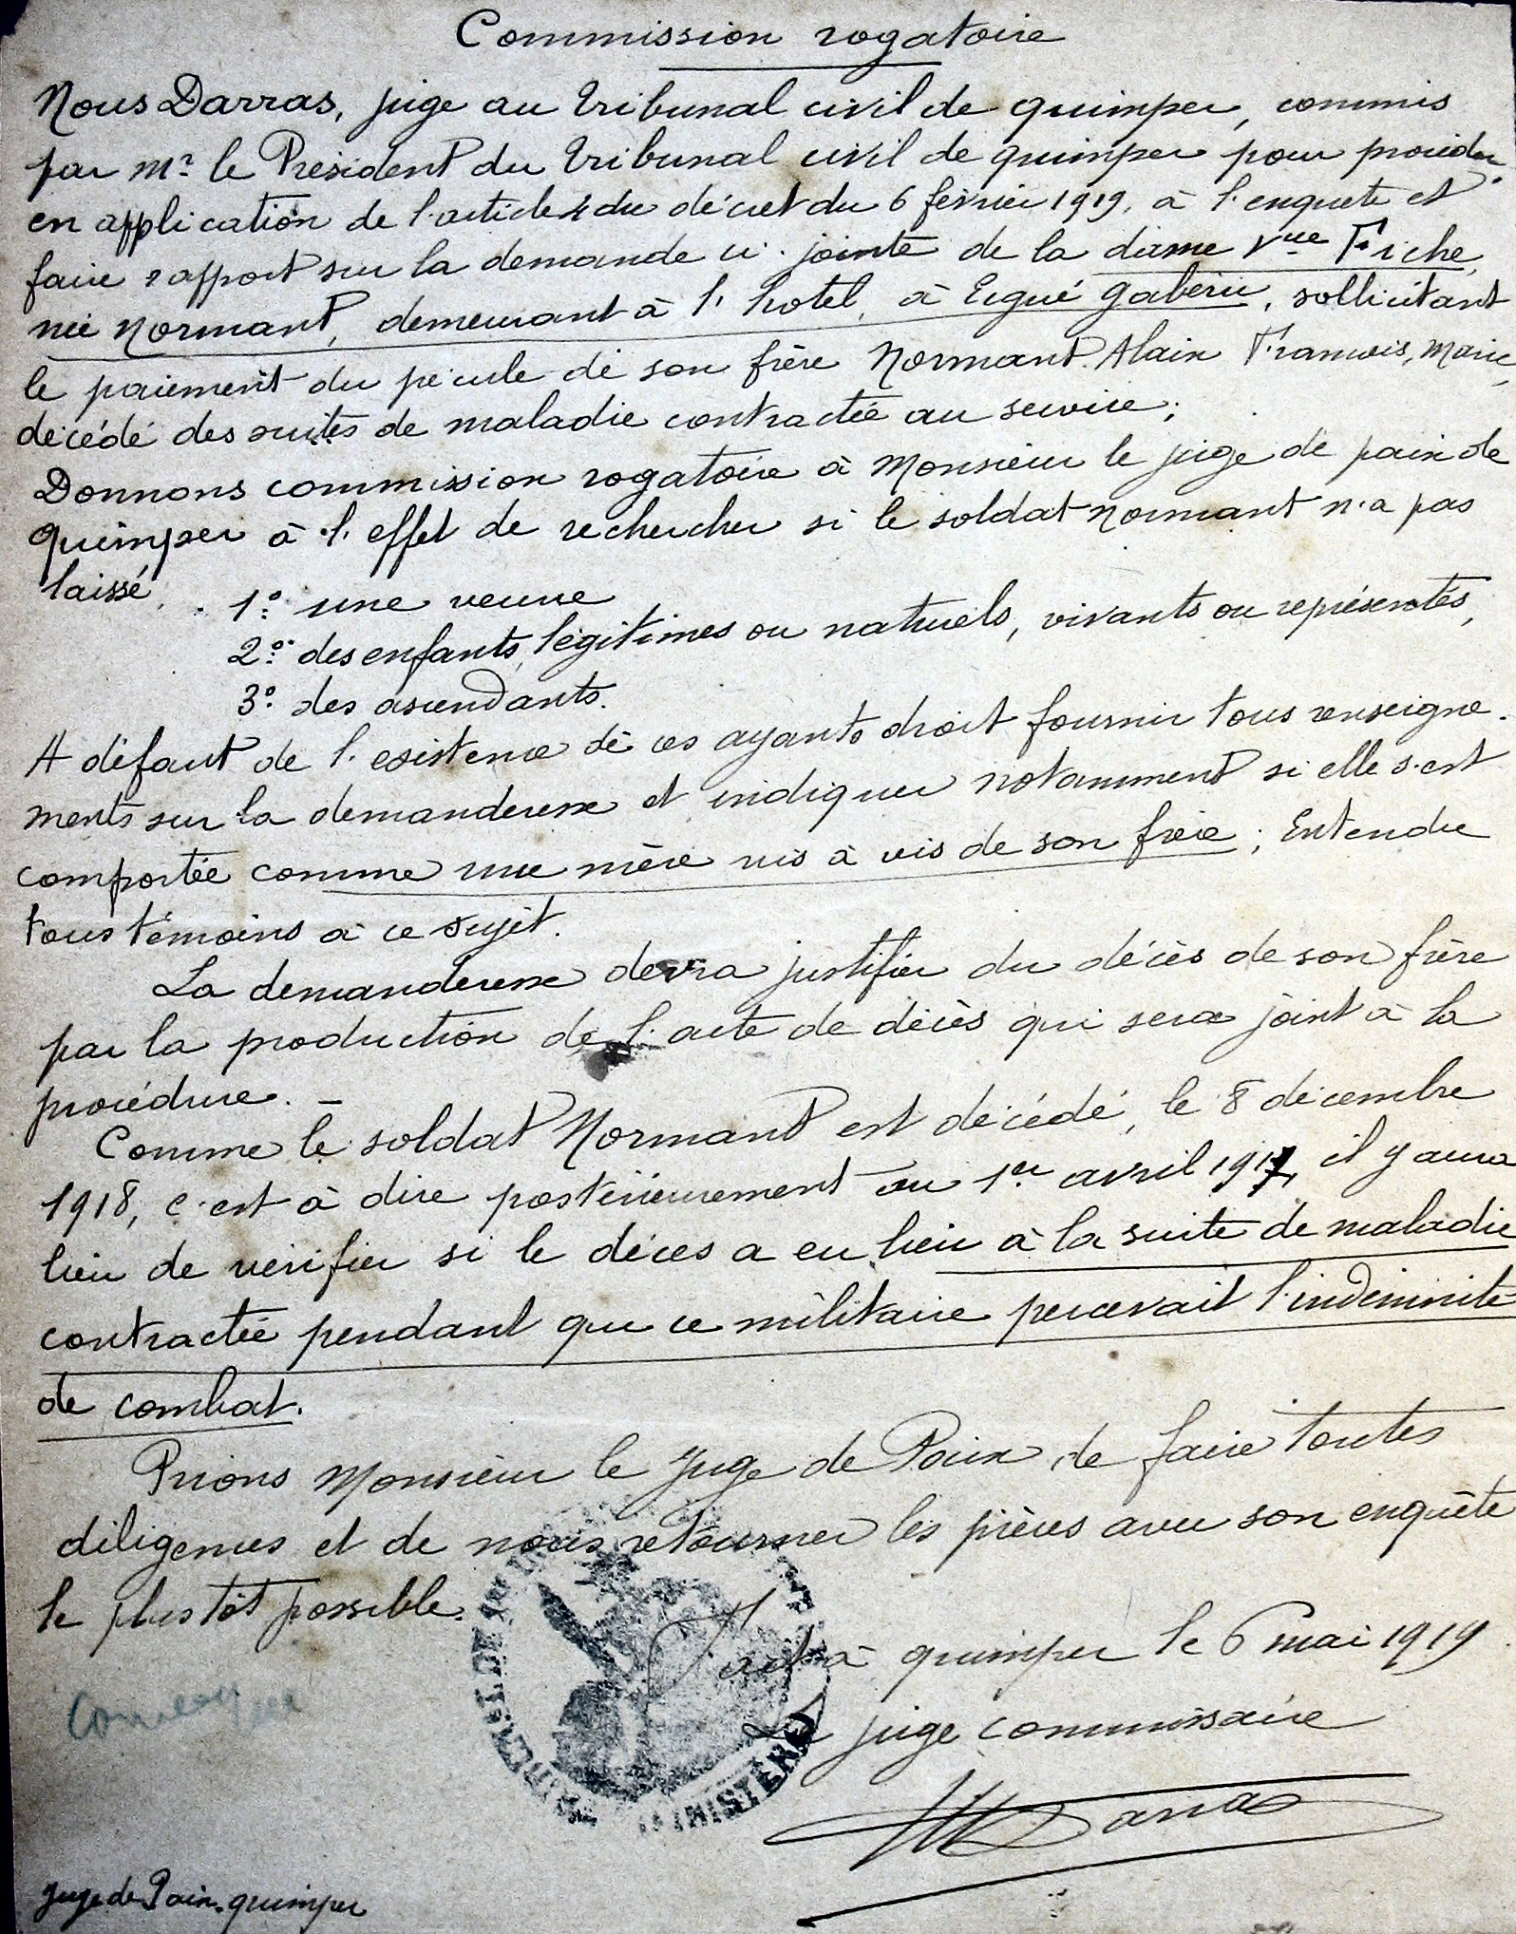 Commission rogatoire
Nous Darras, juge au tribunal civil de quimper, commis
par Mr le Président du tribunal civil de quimper pour procéder
en application de l'article 4 du décret du 6 février 1919, à l'enquete et
faire rapport sur la demande ci-jointe de la dame Vve Friche,
née Normant, demeurant à l'hotel, à Ergué gabéric, sollicitant
le paiement du pécule de son frère Normant Alain François, Marie,
décédé des suites de maladie contractée au service;
Donnons commission rogatoire à Monsieur le juge de paix de
quimper à l'effet de rechercher si le soldat Normant n'a pas
laissé.
1º une veuve
2º des enfants légitimes ou naturels, vivants ou représentés,
3º des ascendants.
A défaut de l'existence de ces ayants droit fournir tous renseigne-
ments sur la demanderesse et indiquer notamment si elle s'est
comportée comme une mère vis à vis de son frère; Entendre
tous témoins à ce sujet.
La demanderesse devra justifier du décès de son frère
par la production de l'acte de décès qui sera joint à la
procédure. –
Comme le soldat Normant est décédé, le 8 décembre
1918, c'est à dire postérieurement au 1er avril 1917, il y aura
lieu de vérifier si le décès a eu lieu à la suite de maladie
contractée pendant que ce militaire percevait l'indemnité
de combat.
Prions Monsieur le Juge de Paix, de faire toutes
diligences et de nous retourner les pièces avec son enquête
le plus tôt possible.
Fait à quimper le 6 mai 1919
Le juge commissaire
Darras
Juge de Paix. quimper